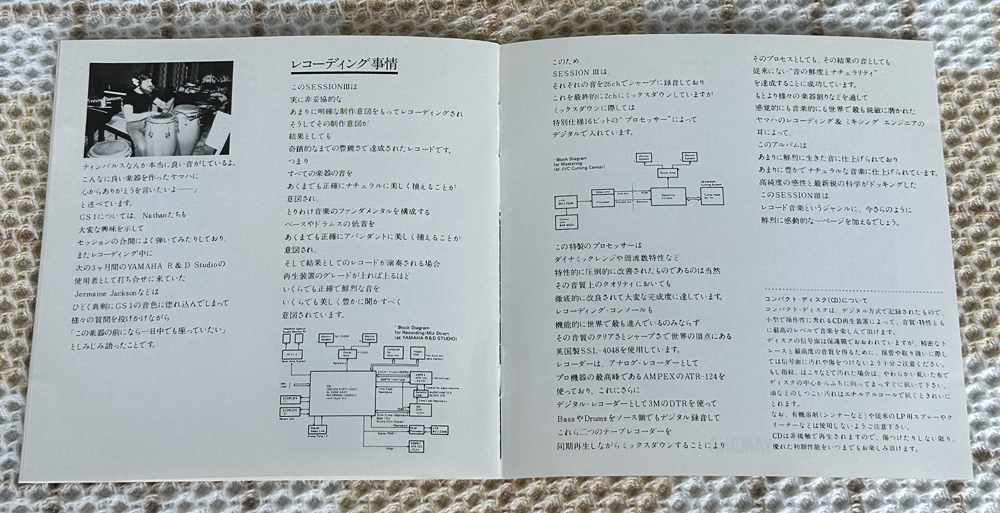 ティンバルスなんか本当に良い音がしているよ。
こんなに良い楽器を作ったヤマハに
心からありがとうを言いたいよ——」
と述べています。
GS1については、Nathanたちも
大変な興味を示して
セッションの合間によく弾いてみたりしており、
またレコーディング中に
次の3ヶ月間のYAMAHA R&D Studioの
使用者として打ち合せに来ていた
Jermaine Jacksonなどは
ひどく真剣にGS1の音色に惚れ込んでしまって
様々の質問を投げかけながら
「この楽器の前になら一日中でも座っていたい」
としみじみ語ったことです。
レコーディング事情
このSESSIONⅢは
実に非妥協的な
あまりに明確な制作意図をもってレコーディングされ
そうしてその制作意図が
結果としても
奇蹟的なまでの豊饒さで達成されたレコードです。
つまり
すべての楽器の音を
あくまでも正確にナチュラルに美しく捕えることが
意図され、
とりわけ音楽のファンダメンタルを構成する
ベースやドラムスの低音を
あくまでも正確にアバンダントに美しく捕えることが
意図され、
そして結果としてのレコードが演奏される場合
再生装置のグレードが上れば上るほど
いくらでも正確で鮮烈な音を
いくらでも美しく豊かに聞かすべく
意図されています。
"Block Diagram
for Recording/Mix Down
(at YAMAHA R&D STUDIO)
このため
SESSION Ⅲは、
それぞれの音を26chでシャープに録音しており
これを最終的に2chにミックスダウンしていますが
ミックスダウンに際しては
特別仕様16ビットの"プロセッサー"によって
デジタルで入れています。
"Block Diagram
for Mastering
(at JVC Cutting Center)
この特製のプロセッサーは
ダイナミックレンジや周波数特性など
特性的に圧倒的に改善されたものであるのは当然
その音質上のクオリティにおいても
徹底的に改良されて大変な完成度に達しています。
レコーディング・コンソールも
機能的に世界で最も進んでいるのみならず
その音質のクリアさとシャープさで世界の頂点にある
英国製SSL-4048を使用しています。
レコーダーは、アナログ・レコーダーとして
プロ機器の最高峰であるAMPEXのATR-124を
使っており、これにさらに
デジタル・レコーダーとして3MのDTRを使って
BassやDrumsをソース側でもデジタル録音して
これら二つのテープレコーダーを
同期再生しながらミックスダウンすることにより
そのプロセスとしても、その結果の音としても
従来にない"音の鮮度とナチュラリティ"
を達成することに成功しています。
もとより様々の楽器創りなどを通して
感覚的にも音楽的にも世界で最も鋭敏に磨かれた
ヤマハのレコーディング & ミキシング エンジニアの
耳によって、
このアルバムは
あまりに鮮烈に生きた音に仕上げられており
あまりに豊かでナチュラルな音楽に仕上げられています。
高純度の感性と最新鋭の科学がドッキングした
このSESSIONⅢは
レコード音楽というジャンルに、今さらのように
鮮烈に感動的な一ページを加えるでしょう。
コンパクト・ディスク(CD)について
コンパクト・ディスクは、デジタル方式で記録されたもので、
小型で操作性に秀れるCD再生装置によって、音質・特性とも
に最高のレベルで音楽を楽しんで頂けます。
ディスクの信号面は保護膜でおおわれていますが、精密なト
レースと最高度の音質を得るために、保管や取り扱いに際し
ては信号面に汚れや傷をつけないよう十分ご注意ください。
もし指紋、ほこりなどで汚れた場合は、やわらかい乾いた布で
ディスクの中心からふちに向ってまっすぐに拭いて下さい。
油などのしつこい汚れはエチルアルコールで拭くときれいに
とれます。
なお、有機溶剤(シンナーなど)や従来のLP用スプレーやク
リーナーなどは使用しないようご注意下さい。
CDは非接触で再生されますので、傷つけたりしない限り、
優れた初期性能をいつまでもお楽しみ頂けます。